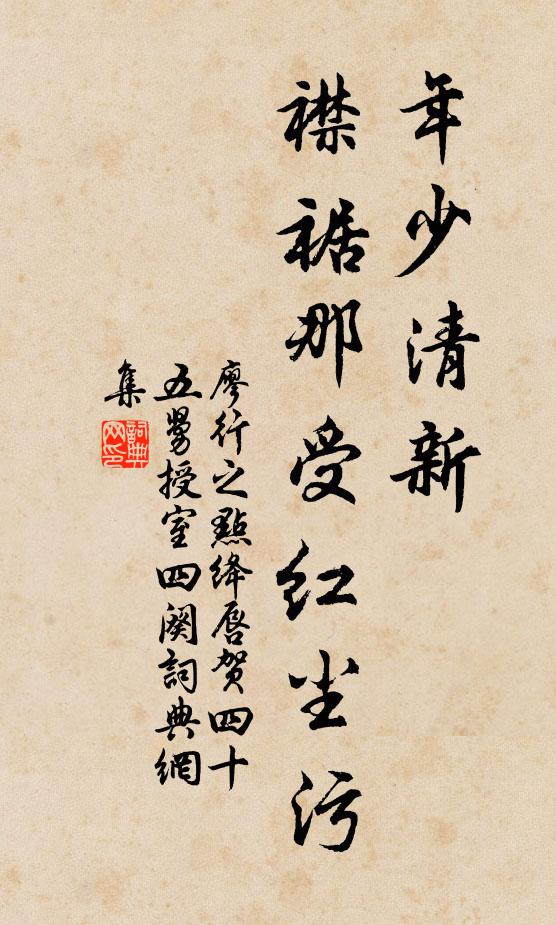 年少清新
襟裾那受红尘污
廖行之點绛唇贺四十
五舅授室四阕詞典網
集
詞典
网印